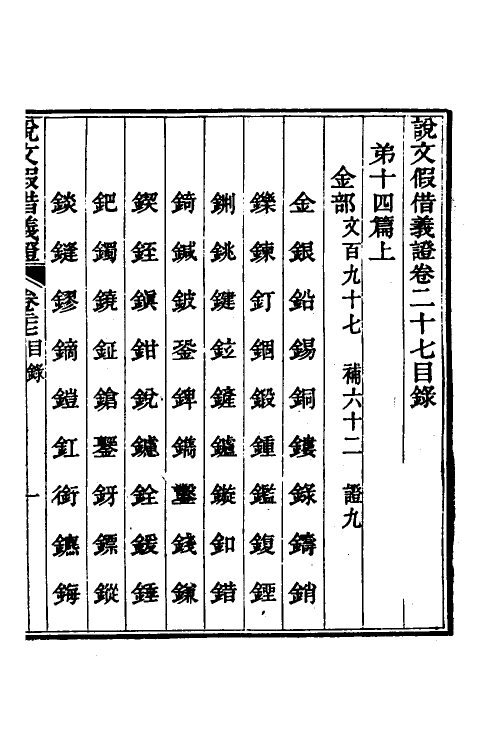 說文假借義證卷二十七目錄
弟十四篇上
金部文百九十七　補六十二　證九
金銀鉛錫銅鏤錄鑄銷
鑠鍊釘錮鍛鍾鑑鍑鋞
鉶銚鍵鉉鏟鑪鏇釦錯
錡鍼鈹銎錍鐫鏨錢鎌
鍥銍鎮鉗銳鑢銓鍰錘
鈀鐲鐃鉦鎗鏨釾鏢鏦
錟鏠鏐鏑鎧釭銜鑣鋂
說文假借義證　卷二十七目錄　一